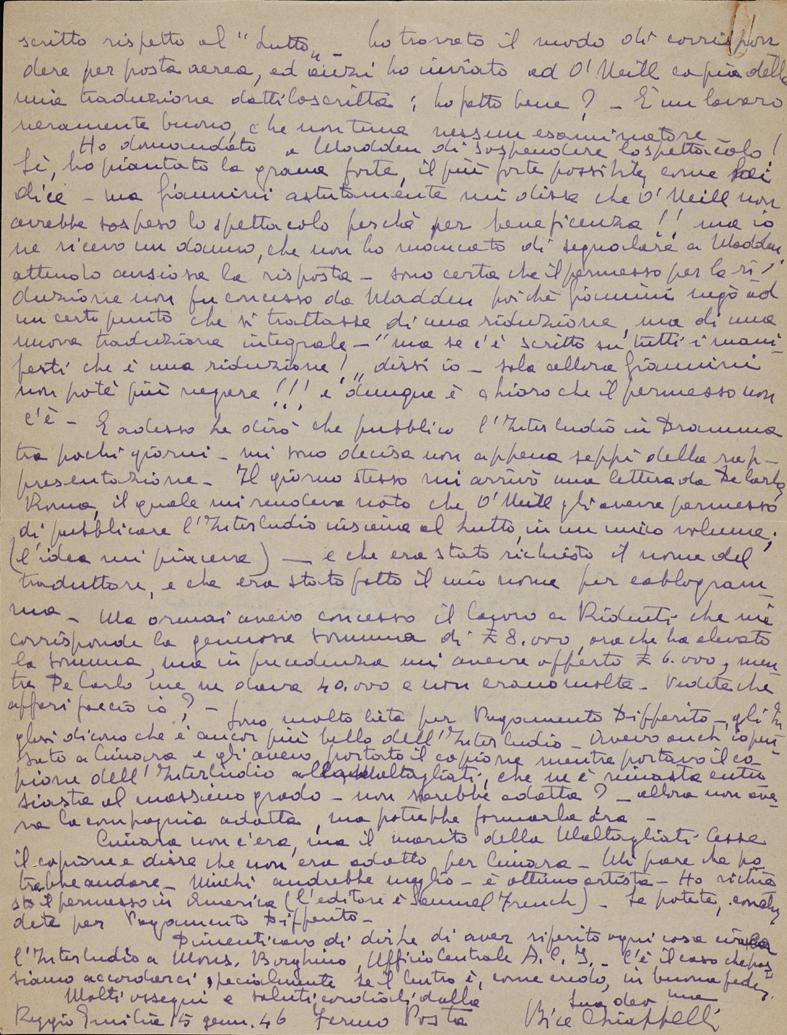 scritto rispetto al "Lutto„ - ho trovato il modo di corrispon
dere per posta aerea, ed anzi ho inviato ad O'Neill copia della
mia traduzione dattiloscritta; ho fatto bene? - È un lavoro
veramente buono, che non teme nessun esaminatore -
Ho domandato a Madden di sospendere lo spettacolo!
Sì, ho piantato la grana forte, il più forte possibile, come
dice - ma Giannini astutamente mi disse che O'Neill non
avrebbe sospeso lo spettacolo perché per beneficenza!! ma io
ne ricevo un danno, che non ho mancato di segnalare a Madden
attendo ansiosa la risposta - sono certa che il permesso per la ri
duzione non fu concesso da Madden poiché Giannini negò ad
un certo punto che si trattasse di una riduzione, ma di una
nuova traduzione integrale - "ma se c'è scritto su tutti i mani
festi che è una riduzione!„ dissi io - solo allora Giannini
non poté più negare!!! e dunque è chiaro che il permesso non
c'è - E adesso Le dirò che pubblico l'Interludio in Dramma
tra pochi giorni - mi sono decisa non appena seppi della rap-
presentazione - Il giorno stesso mi arrivò una lettera da De Carlo,
Roma, il quale mi rendeva noto che O'Neill gli aveva permesso
di pubblicare l'Interludio insieme al Lutto, in un unico volume;
(l'idea mi piaceva) - e che era stato richiesto il nome del
traduttore, e che era stato fatto il mio nome per cablogram-
ma - Ma ormai avevo concesso il lavoro a Ridenti che mi
corrisponde la generosa somma di £ 8.000, ora che ha elevato
la somma, ma in precedenza mi aveva offerto £ 6.000, men
tre De Carlo me ne dava 40.000 e non erano molte - Vedete che
affari faccio io? -
Sono molto lieta per Pagamento Differito - gli In
glesi dicono che è ancor più bello dell'Interludio - Avevo anch'io pen
sato a Cimara e gli avevo portato il copione mentre portavo il co
pione dell'Interludio alla Maltagliati, che ne è rimasta entu
siasta al massimo grado - non sarebbe adatta? - allora non ave
va la compagnia adatta, ma potrebbe formarla ora -
Cimara non c'era, ma il marito della Maltagliati lesse
il copione e disse che non era adatto per Cimara - Mi pare che po
trebbe andare - Ninchi andrebbe meglio - è ottimo artista - Ho richie
sto il permesso in America (l'editore è Samuel French) - Se potete,
dete per Pagamento Differito -
Dimenticavo di dirLe di aver riferito ogni cosa circa
l'Interludio a Mons. Borghino, Ufficio Centrale A.C.I. - C'è il caso che pos
siamo accordarci, specialmente se il Centro è, come credo, in buona fede,
Molti ossequi e saluti cordiali dalla
Sua dev.ma
Reggio Emilia 15 genn. 46 Fermo Posta Bice Chiappelli